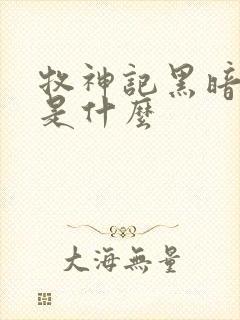 牧神記黑暗
是什麼
大海無量